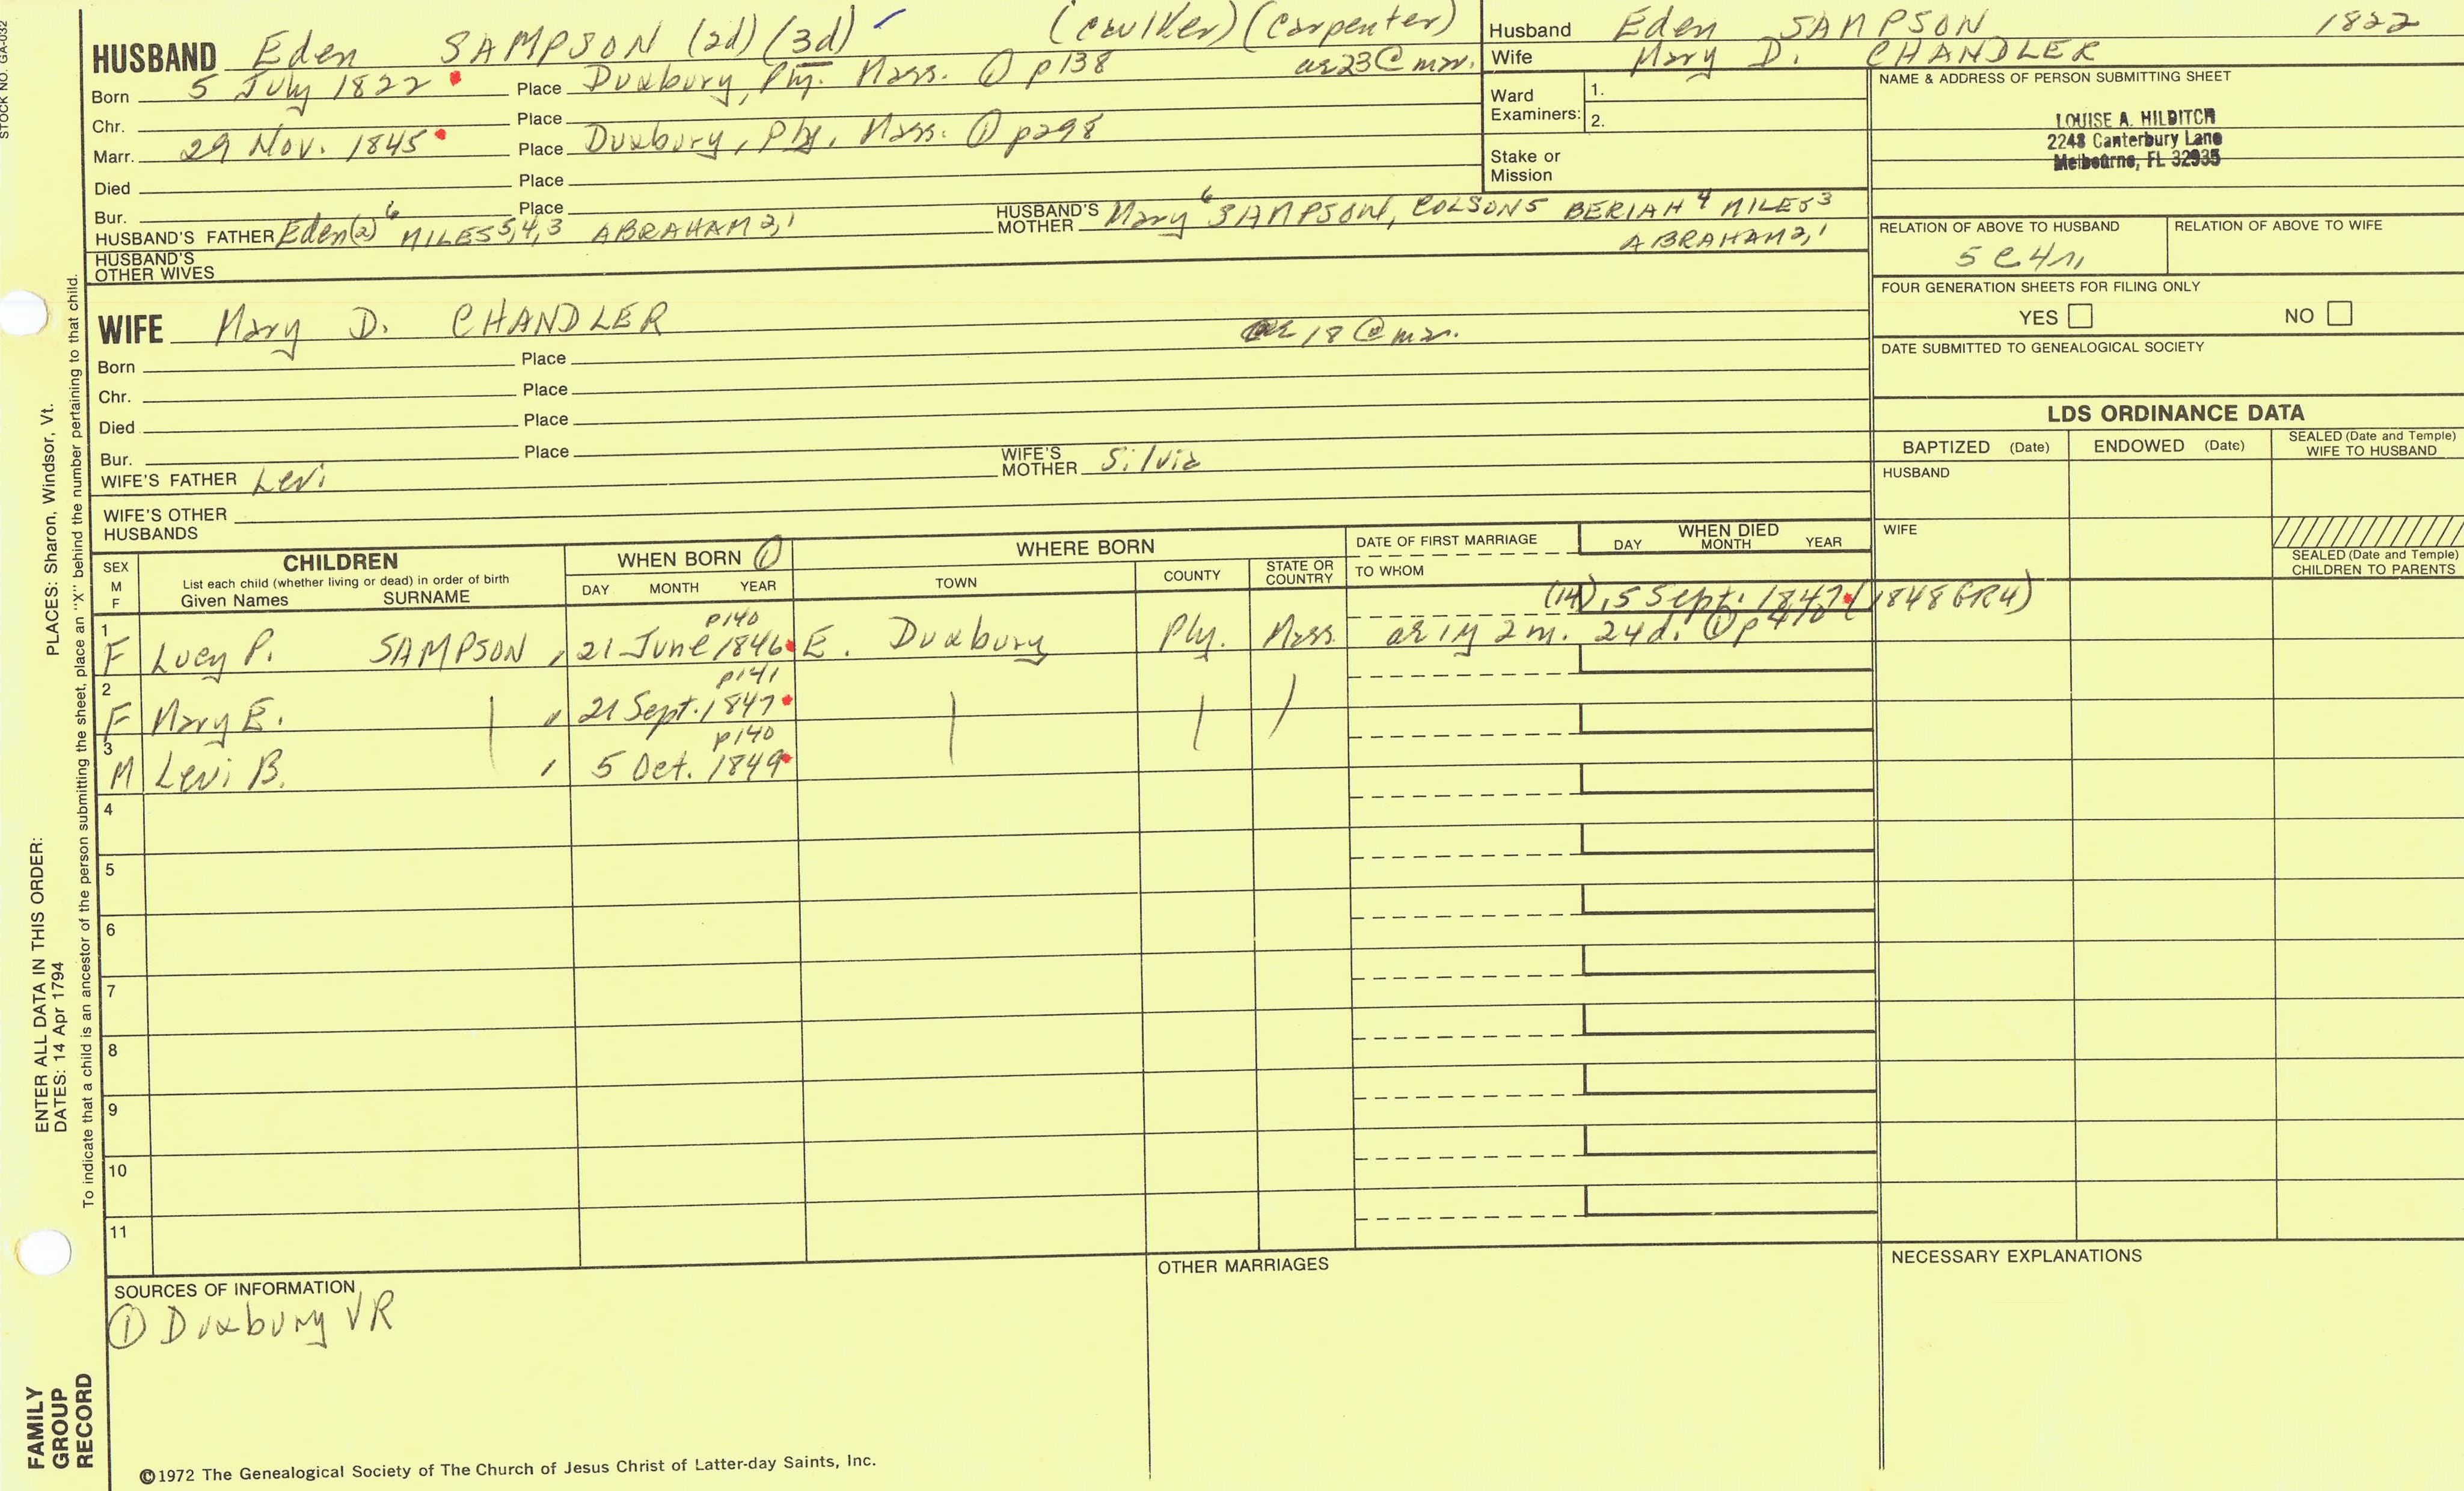 STOCK NO. GA-032
HUSBAND Eden SAMPSON (2d) (3d) (caulker) (carpenter)
Born 5 July 1822 Place Duxbury, Ply. Mass. ① p138 ae 23 @ mar.
Chr. Place
Marr. 29 Nov. 1845 Place Duxbury, Ply, Mass. ① p298
Died Place
Bur. Place
HUSBAND'S FATHER Eden(2)6 MILES5,4,3 ABRAHAM2,1
HUSBAND'S MOTHER Mary6 SAMPSON, COLSON5 BERIAH4 MILES3
ABRAHAM2,1
HUSBAND'S OTHER WIVES
Husband Eden SAMPSON 1822
Wife Mary D. CHANDLER
Ward Examiners: 1.
2.
Stake or Mission
NAME & ADDRESS OF PERSON SUBMITTING SHEET
LOUISE A. HILDITCH
2248 Canterbury Lane
Melbourne, FL 32935
RELATION OF ABOVE TO HUSBAND RELATION OF ABOVE TO WIFE
5 C 4 r
FOUR GENERATION SHEETS FOR FILING ONLY
YES NO
DATE SUBMITTED TO GENEALOGICAL SOCIETY
WIFE Mary D. CHANDLER ae 18 @ mar.
Born Place
Chr. Place
Died Place
Bur. Place
WIFE'S FATHER Levi
WIFE'S MOTHER Silvia
WIFE'S OTHER HUSBANDS
LDS ORDINANCE DATA
BAPTIZED (Date) ENDOWED (Date) SEALED (Date and Temple) WIFE TO HUSBAND
HUSBAND
WIFE
SEALED (Date and Temple) CHILDREN TO PARENTS
SEX M F
CHILDREN
List each child (whether living or dead) in order of birth
Given Names SURNAME
WHEN BORN ①
DAY MONTH YEAR
WHERE BORN
TOWN COUNTY STATE OR COUNTRY
DATE OF FIRST MARRIAGE
TO WHOM
WHEN DIED
DAY MONTH YEAR
(14), 5 Sept. 1847 (1848 GR4)
p140
1 F Lucy P. SAMPSON, 21 June 1846 E. Duxbury Ply. Mass ae 1y 2m. 24d. ① p410
p141
2 F Mary E. 21 Sept. 1847
p140
3 M Levi B. 5 Oct. 1849
4
5
6
7
8
9
10
11
SOURCES OF INFORMATION
① Duxbury VR
OTHER MARRIAGES
NECESSARY EXPLANATIONS
©1972 The Genealogical Society of The Church of Jesus Christ of Latter-day Saints, Inc.
FAMILY GROUP RECORD
ENTER ALL DATA IN THIS ORDER:
DATES: 14 Apr 1794
PLACES: Sharon, Windsor, Vt.
To indicate that a child is an ancestor of the person submitting the sheet, place an "X" behind the number pertaining to that child.